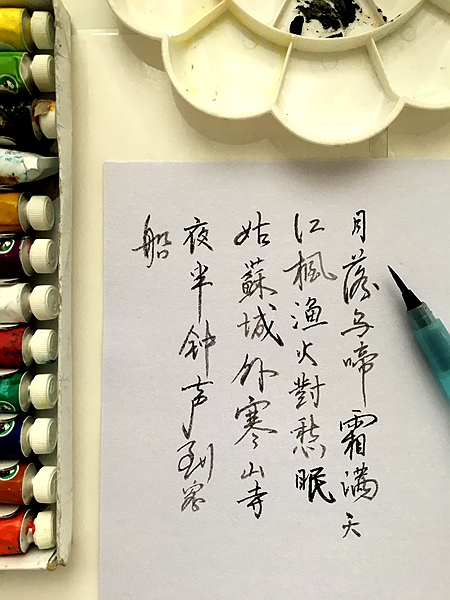 月落乌啼霜满天
江楓渔火對愁眠
姑蘇城外寒山寺
夜半钟声到客
船